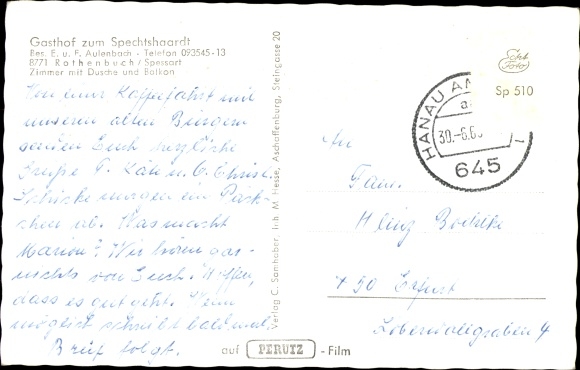 Gasthof zum Spechtshaardt
Bes. E. u. F. Aulenbach - Telefon 093545-13
8771 Rothenbuch / Spessart
Zimmer mit Dusche und Balkon
Von einer Kaffeefahrt mit
unseren alten Bürgern
senden Euch herzliche
Grüße T. Käte u. O. Christ.
Schicke morgen ein Päck-
chen ab. Was macht
Marion? Wir hören gar-
nichts von Euch. Hoffen,
dass es gut geht. Wenn
möglich schreibt bald mal,
Brief folgt.
Verlag C. Samhaber, Inh. M. Hesse, Aschaffenburg, Steingasse 20
auf PERUTZ - Film
Echt Foto
Sp 510
HANAU AM
30.-6.6
645
An
Fam.
Heinz
50 Erfurt
4